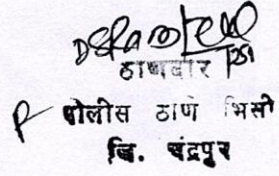 ठाणेदार PSI
पोलीस ठाणे भिसी
जि. चंद्रपुर